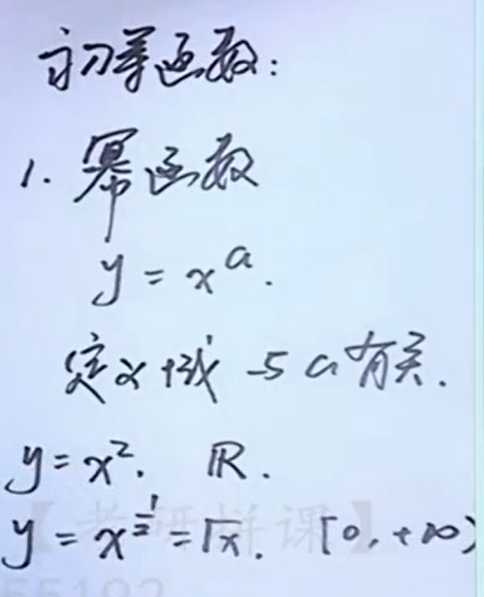 初等函数:
1. 幂函数
y = x^a.
定义域与a有关.
y = x². ℝ.
y = x^½ = √x. [0, +∞)
【考研样课】
55192